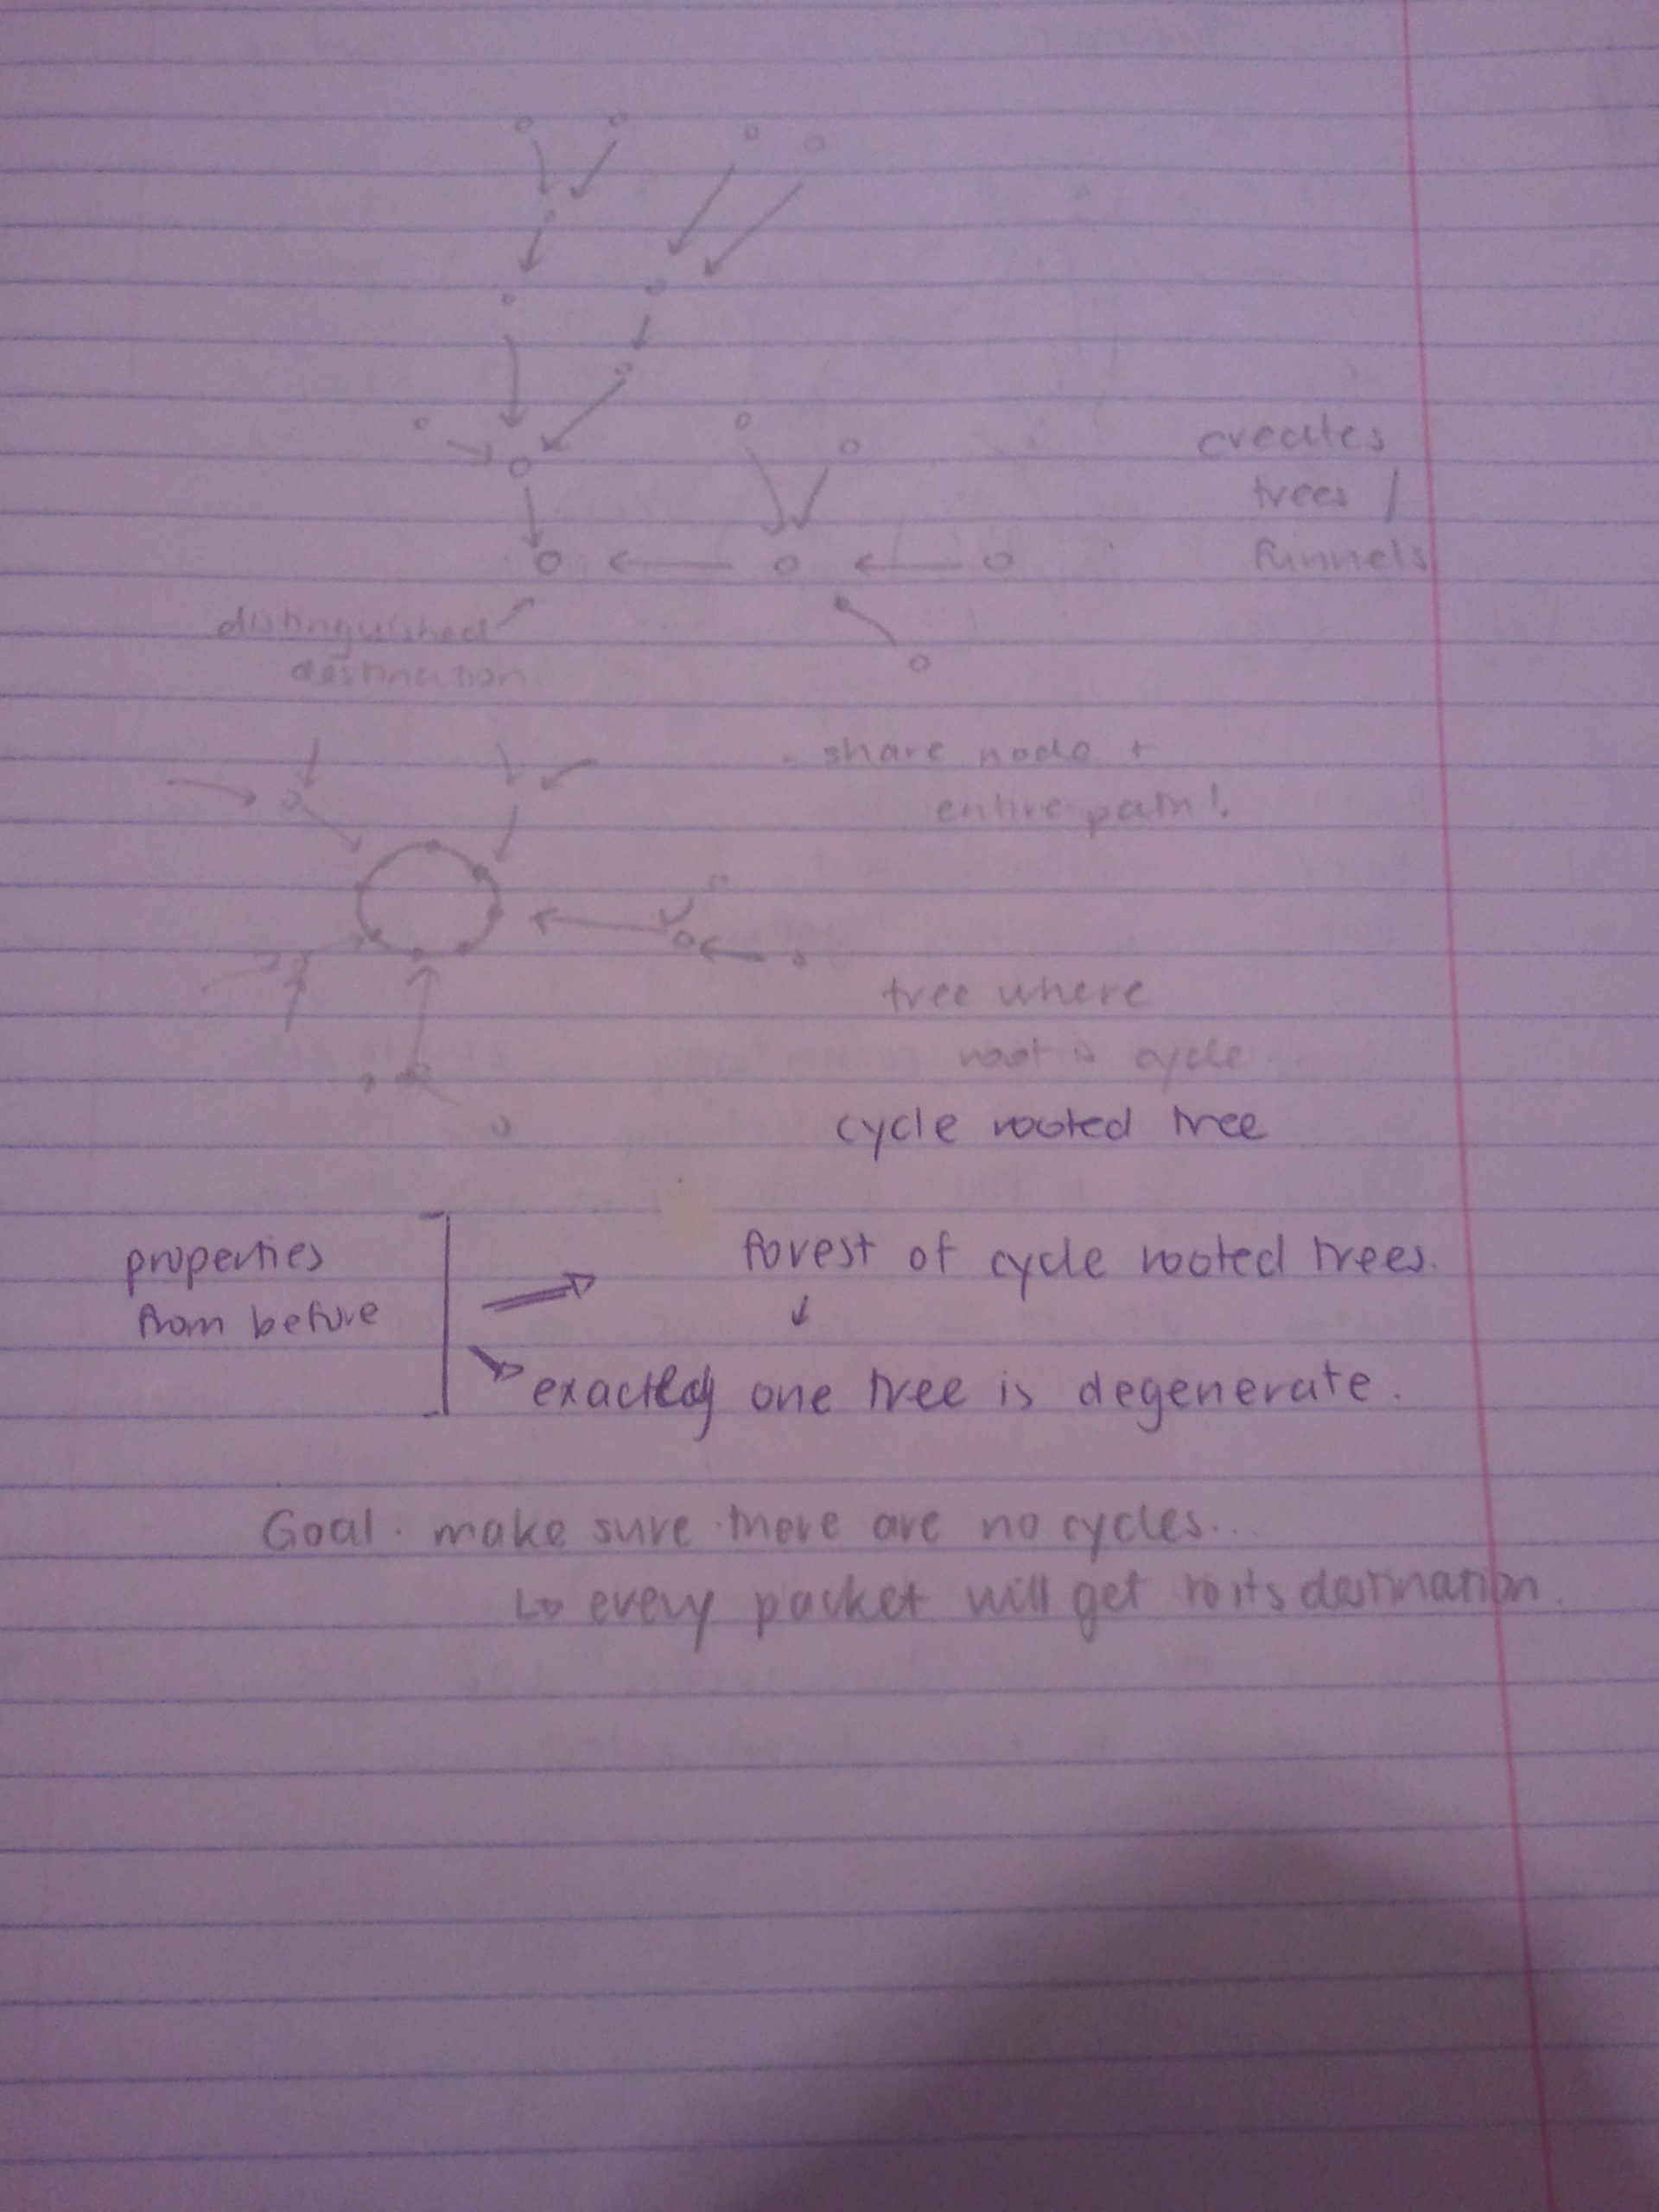 creates
trees /
funnels
distinguished
destination
- share node +
entire path!
tree where
root is cycle
cycle rooted tree
properties
from before
forest of cycle rooted trees.
exactly one tree is degenerate.
Goal. make sure there are no cycles...
↳ every packet will get to its destination.